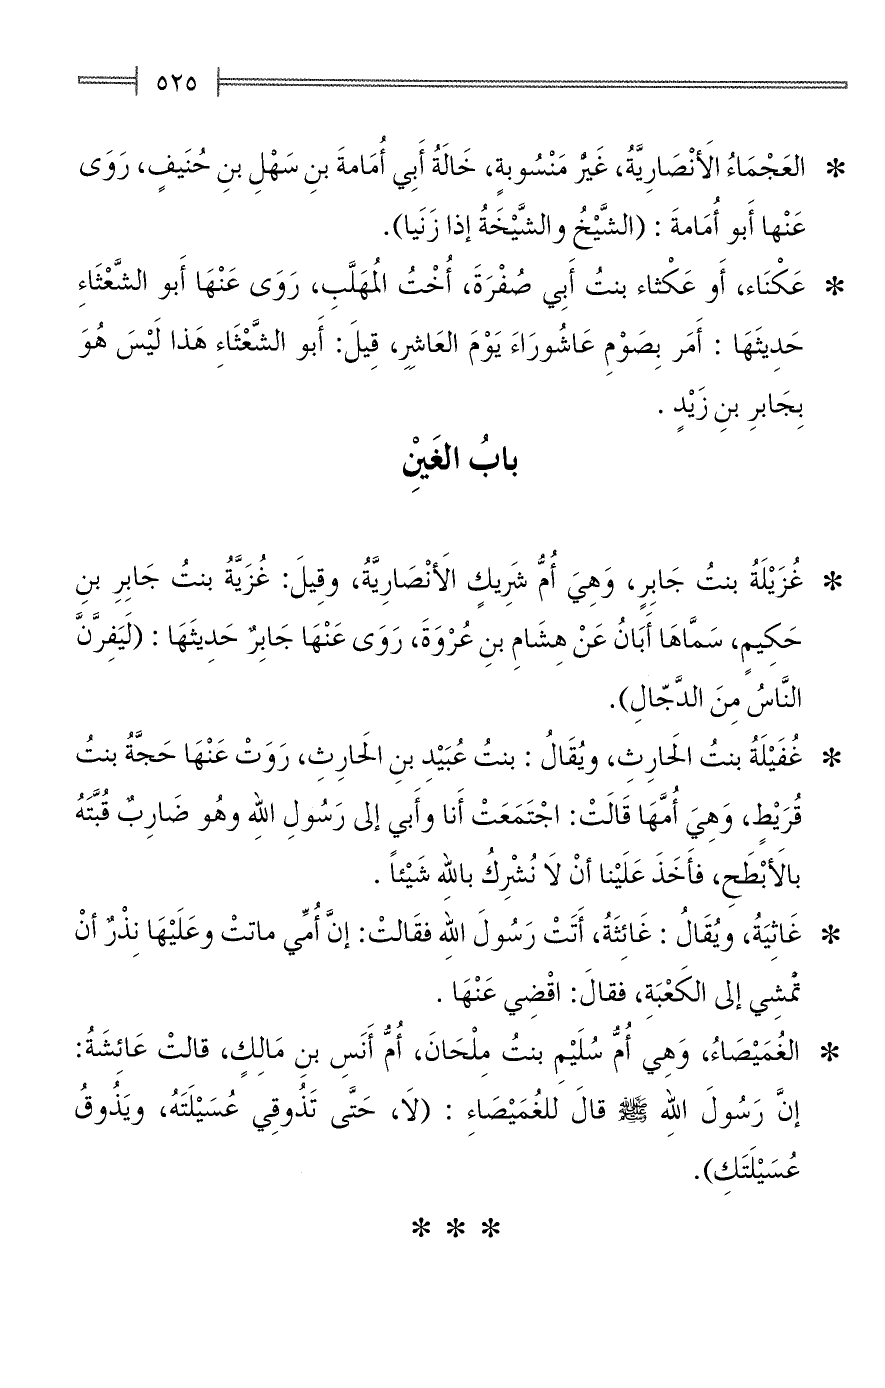 ٥٢٥
* العَجْمَاءُ الأَنْصَارِيَّةُ، غَيْرُ مَنْسُوبةٍ، خَالَةُ أَبِي أُمَامةَ بنِ سَهْلِ بنِ حُنَيفٍ، رَوَى
عَنْها أبو أُمَامةَ : (الشَّيْخُ والشَّيْخَةُ إذا زَنَيا).
* عَكْنَاء، أو عَكْثاء بنتُ أبي صُفْرَةَ، أُخْتُ المُهَلَّبِ، رَوَى عَنْهَا أبو الشَّعْثَاءِ
حَدِيثَهَا : أَمَر بِصَوْمِ عَاشُورَاءَ يَوْمَ العَاشِرِ، قِيلَ: أبو الشَّعْثَاءِ هَذا لَيْسَ هُوَ
بِجَابرِ بنِ زَيْدٍ .
بابُ الغَيْنِ
* غُزَيْلَةُ بنتُ جَابرٍ، وَهِيَ أُمُّ شَرِيكٍ الأَنْصَارِيَّةُ، وقِيلَ: غُزَيَّةُ بنتُ جَابِرِ بنِ
حَكِيمٍ، سَمَّاهَا أَبَانُ عَنْ هِشَامِ بنِ عُرْوَةَ، رَوَى عَنْهَا جَابِرٌ حَدِيثَهَا : (لَيَفِرَّنَّ
النَّاسُ مِنَ الدَّجّالِ).
* غُفَيْلَةُ بنتُ الحَارِثِ، ويُقَالُ : بنتُ عُبَيْدِ بنِ الحَارِثِ، رَوَتْ عَنْهَا حَجَّةُ بنتُ
قُرَيْطٍ، وَهِيَ أُمَّهَا قَالَتْ: اجْتَمَعَتْ أنا وأَبي إلى رَسُولِ اللهِ وهُو ضَارِبٌ قُبَّتَهُ
بالأَبْطَحِ، فأَخَذَ عَلَيْنا أنْ لَا نُشْرِكُ باللهِ شَيْئاً .
* غَاثِيَةُ، ويُقَالُ : غَائِثَةُ، أَتَتْ رَسُولَ اللهِ فقَالتْ: إنَّ أُمِّي ماتتْ وعَلَيْهَا نِذْرٌ أنْ
تمْشِي إلى الكَعْبَةِ، فقالَ: اقْضِي عَنْهَا .
* الغُمَيْصَاءُ، وَهِي أُمُّ سُلَيْمٍ بنتُ مِلْحَانَ، أُمُّ أَنَسِ بنِ مَالِكٍ، قالتْ عَائِشَةُ:
إنَّ رَسُولَ اللهِ ﷺ قالَ للغُمَيْصَاءِ : (لَا، حَتَّى تَذُوقِي عُسَيْلَتَهُ، ويَذُوقُ
عُسَيْلَتَكِ).
* * *